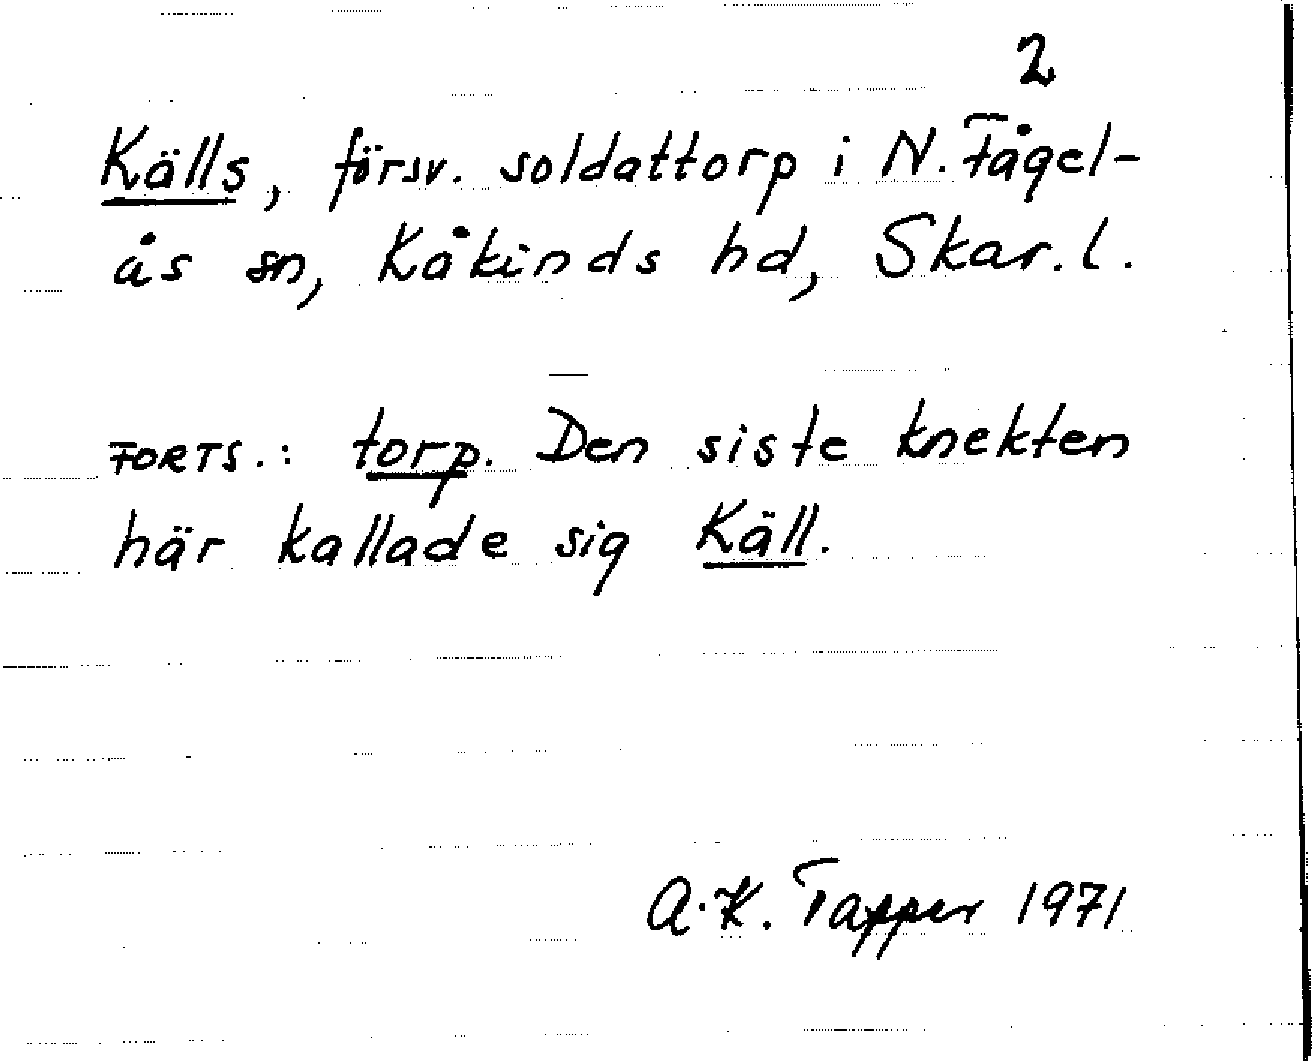 2
Källs, försv. soldattorp i N. Fågel-
ås sn, Kåkinds hd, Skar. l.
FORTS.: torp. Den siste knekten
här kallade sig Käll.
A.K. Tapper 1971